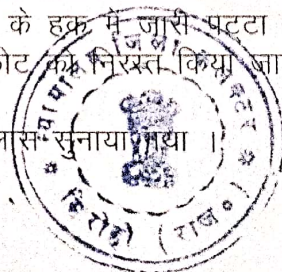 के हक में जारी पटटा
को निरस्त किया जा
सुनाया गया ।
न्यायालय जिला कलक्टर
सिरोही (राज०)